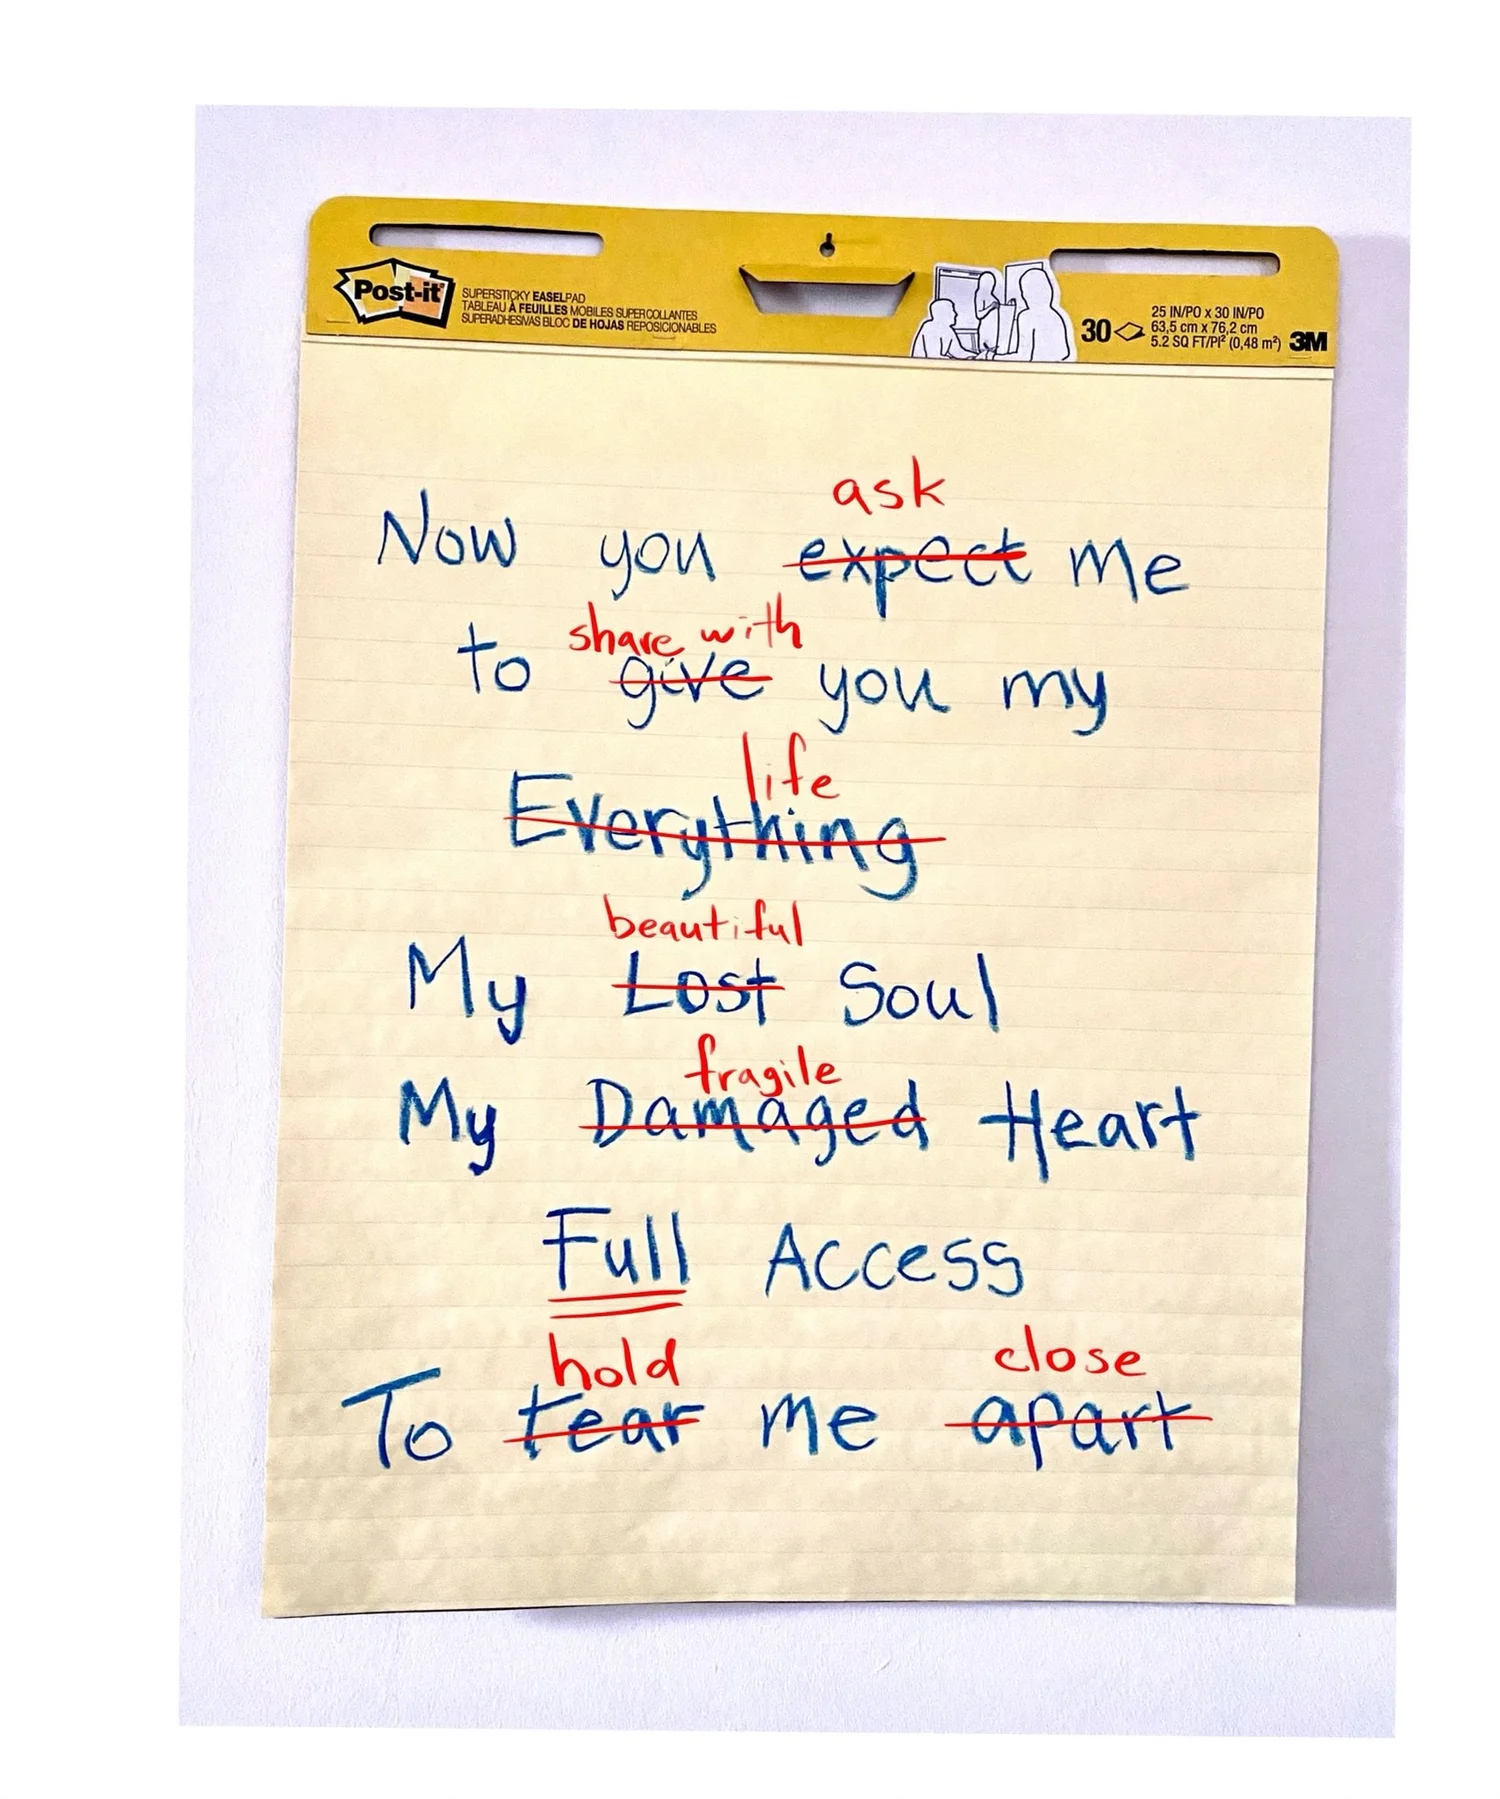 Post-it
SUPERSTICKY EASELPAD
TABLEAU À FEUILLES MOBILES SUPER COLLANTES
SUPERADHESIVAS BLOC DE HOJAS REPOSICIONABLES
30
25 IN/PO x 30 IN/PO
63,5 cm x 76,2 cm
5.2 SQ FT/PI² (0,48 m²)
3M
ask
Now you expect me
share with
to give you my
life
Everything
beautiful
My Lost Soul
fragile
My Damaged Heart
Full Access
hold close
To tear me apart